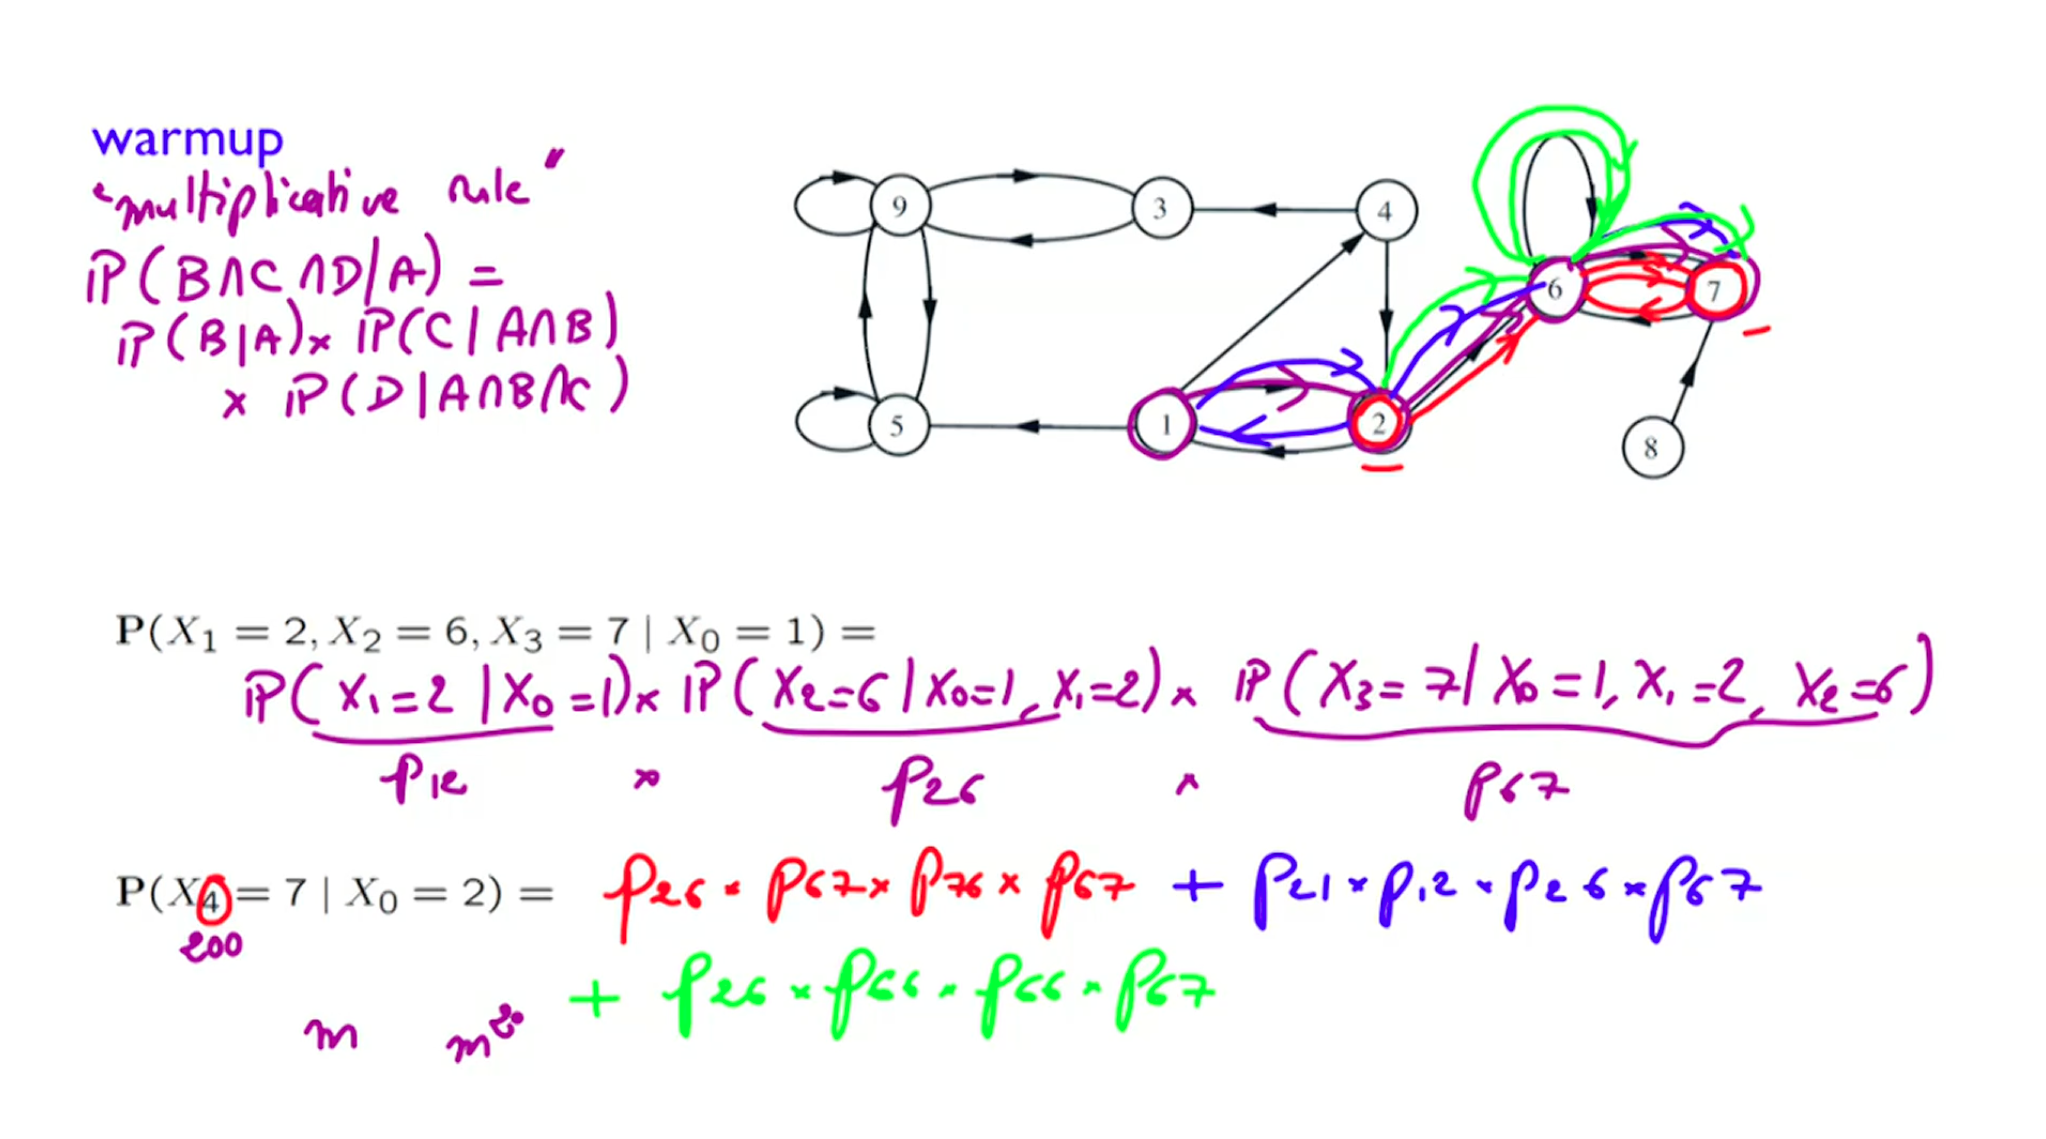 warmup
"multiplicative rule"
P(B∩C∩D|A) =
P(B|A) × P(C|A∩B)
× P(D|A∩B∩C)
9 3 4 6 7
5 1 2 8
P(X₁ = 2, X₂ = 6, X₃ = 7 | X₀ = 1) =
P(X₁=2 | X₀=1) × P(X₂=6 | X₀=1, X₁=2) × P(X₃=7 | X₀=1, X₁=2, X₂=6)
p₁₂ × p₂₆ × p₆₇
P(X₄ = 7 | X₀ = 2) = p₂₆ × p₆₇ × p₇₆ × p₆₇ + p₂₁ × p₁₂ × p₂₆ × p₆₇
200
+ p₂₆ × p₆₆ × p₆₆ × p₆₇
m